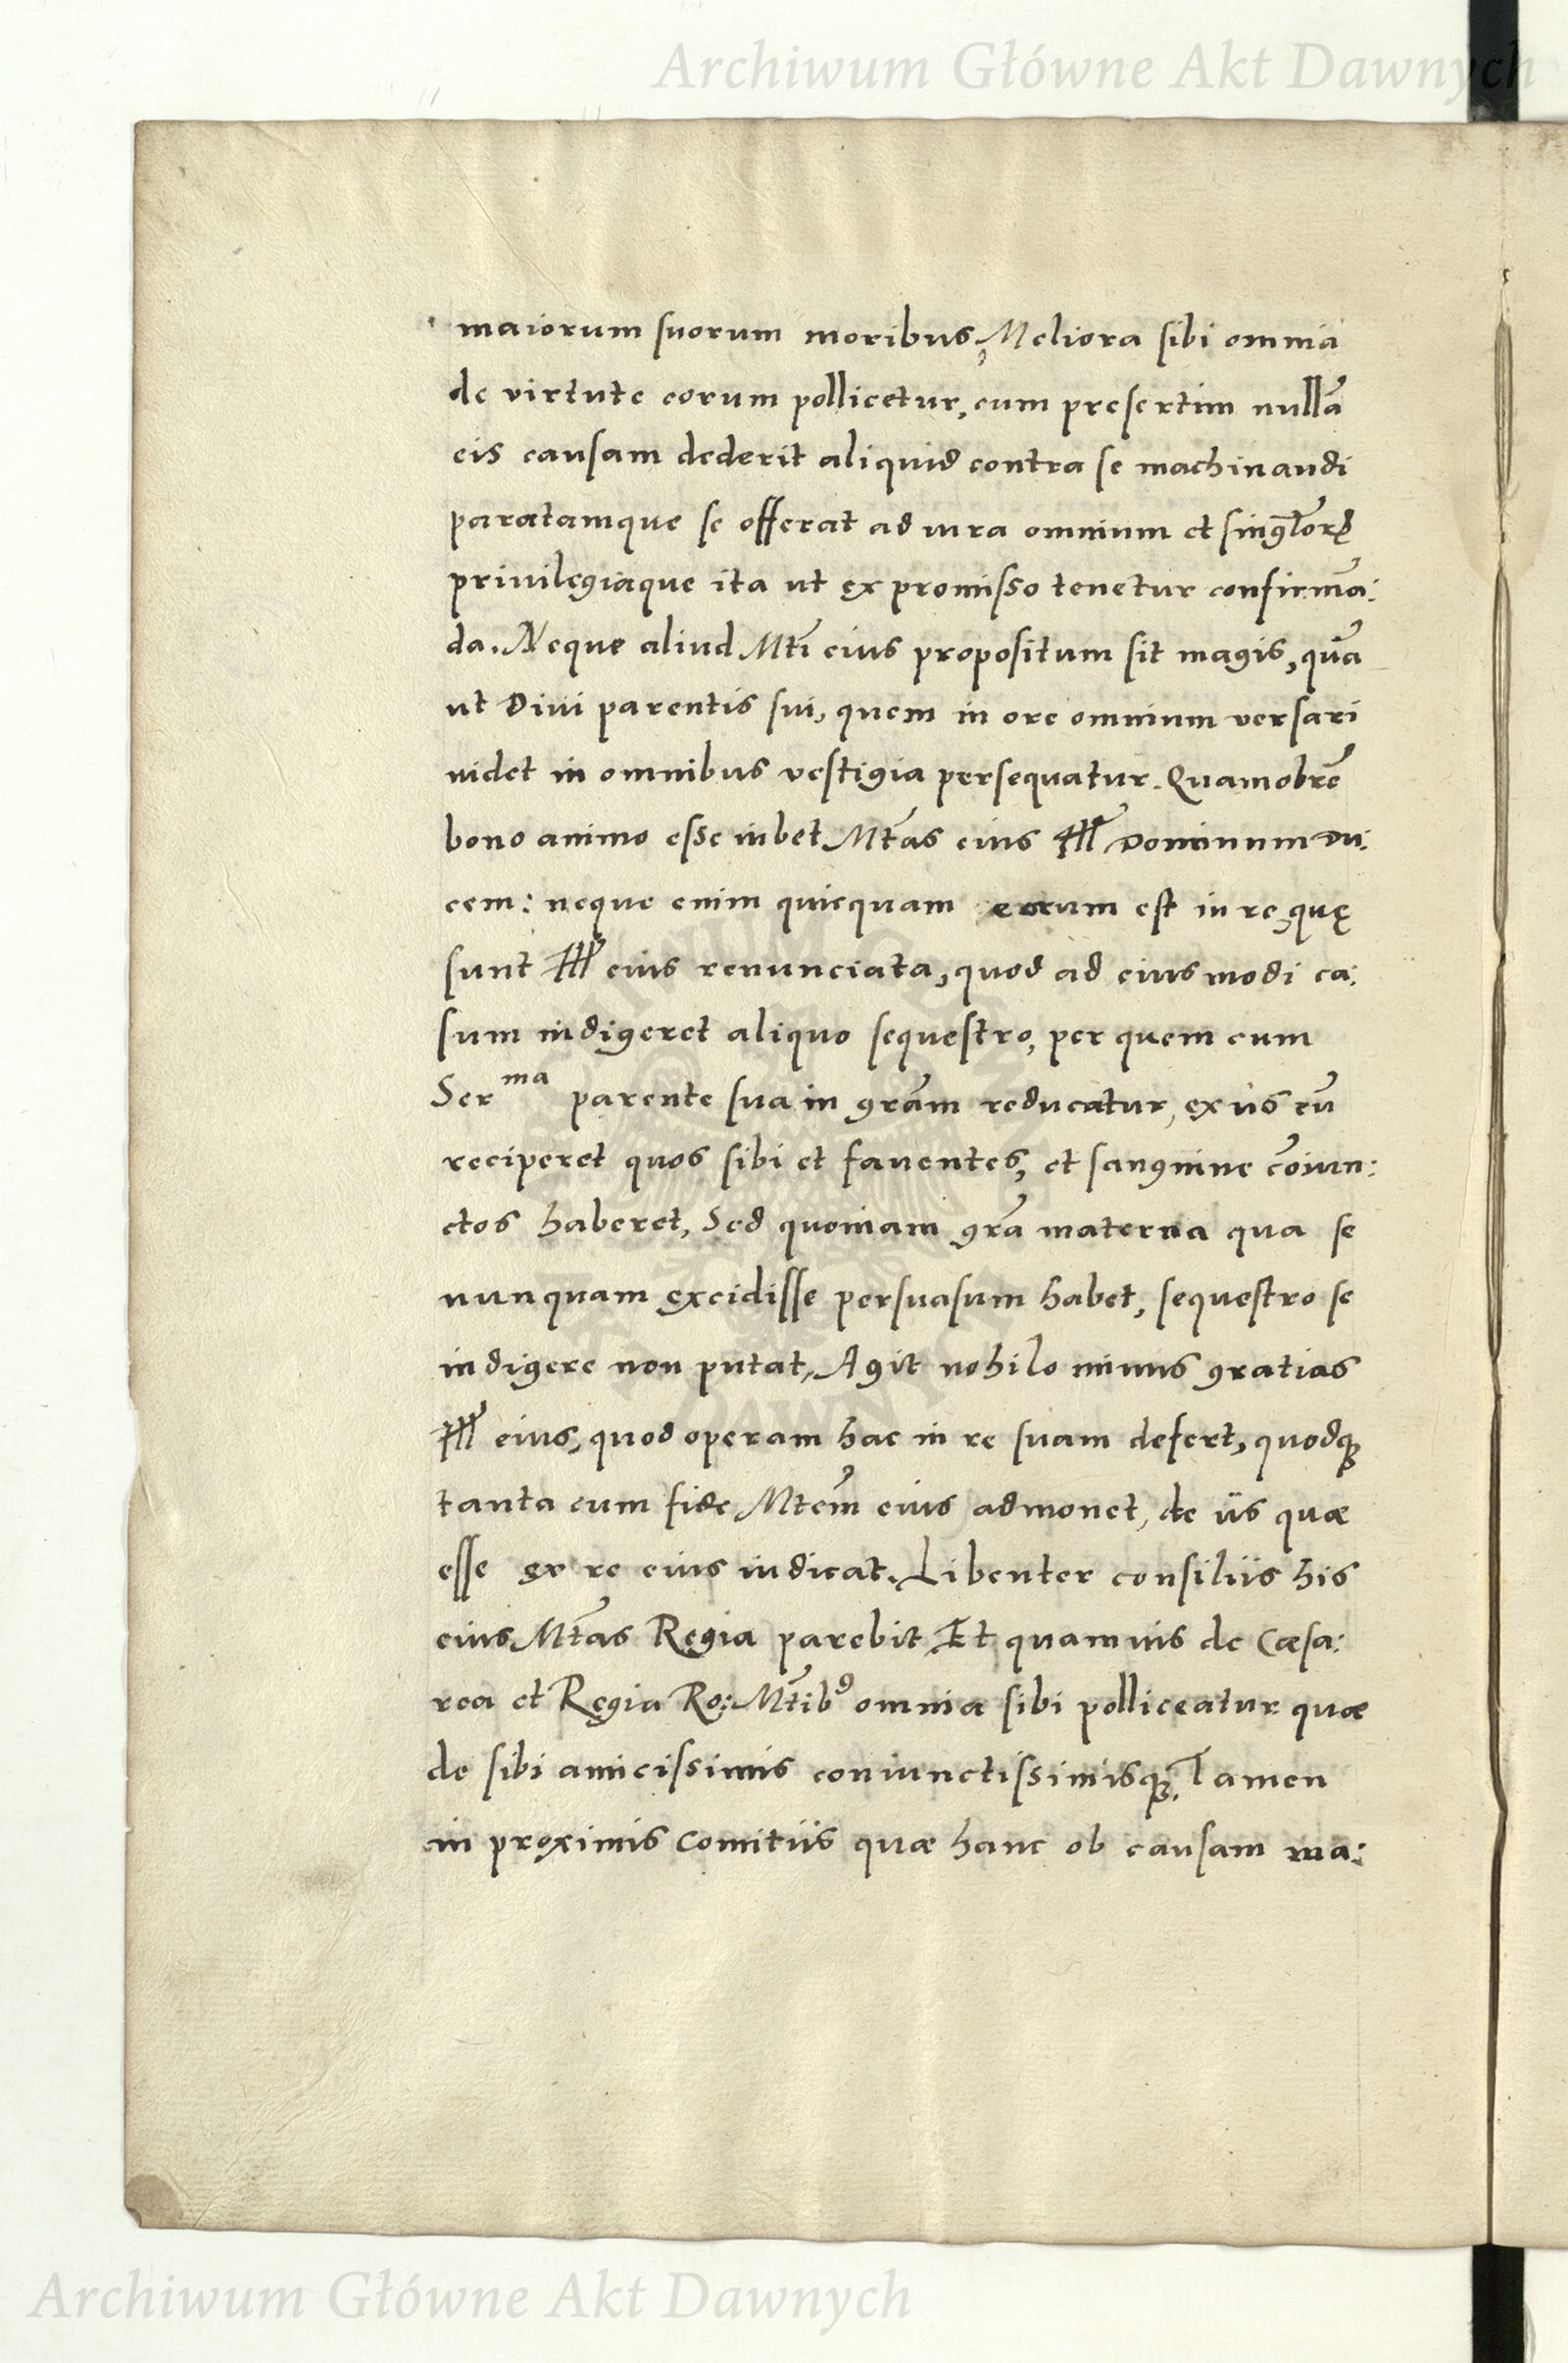 Archiwum Główne Akt Dawnych
maiorum suorum moribus, Meliora sibi omnia
de virtute eorum pollicetur, cum presertim nullã
eis causam dederit aliquid contra se machinandi
paratamque se offerat ad iura omnium et
priuilegiaque ita ut ex promisso tenetur confirmã:
da. Neque aliud Mti eius propositum sit magis, quã
ut Diui parentis sui, quem in ore omnium versari
uidet in omnibus vestigia persequatur. Quamobrẽ
bono animo esse iubet Mtas eius Ill Dominum Du:
cem: neque enim quicquam eorum est in re, quę
sunt Ill eius renunciata, quod ad eiusmodi ca:
sum indigeret aliquo sequestro, per quem cum
Ser ma parente sua in grãm reducatur, ex iis eũ
reciperet quos sibi et fauentes, et sanguine cõiun:
ctos haberet, Sed quoniam grã materna qua se
nunquam excidisse persuasum habet, sequestro se
indigere non putat, Agit nohilo minus gratias
Ill eius, quod operam hac in re suam defert, quodq
tanta cum fide Mtem eius admonet, de iis quæ
esse ex re eius iudicat. Libenter consiliis his
eius Mtas Regia parebit, Et quamuis de Cæsa:
rea et Regia Ro: Mtib9 omnia sibi polliceatur quæ
de sibi amicissimis coniunctissimisq, Tamen
in proximis Comitiis quæ hanc ob causam ma:
Archiwum Główne Akt Dawnych